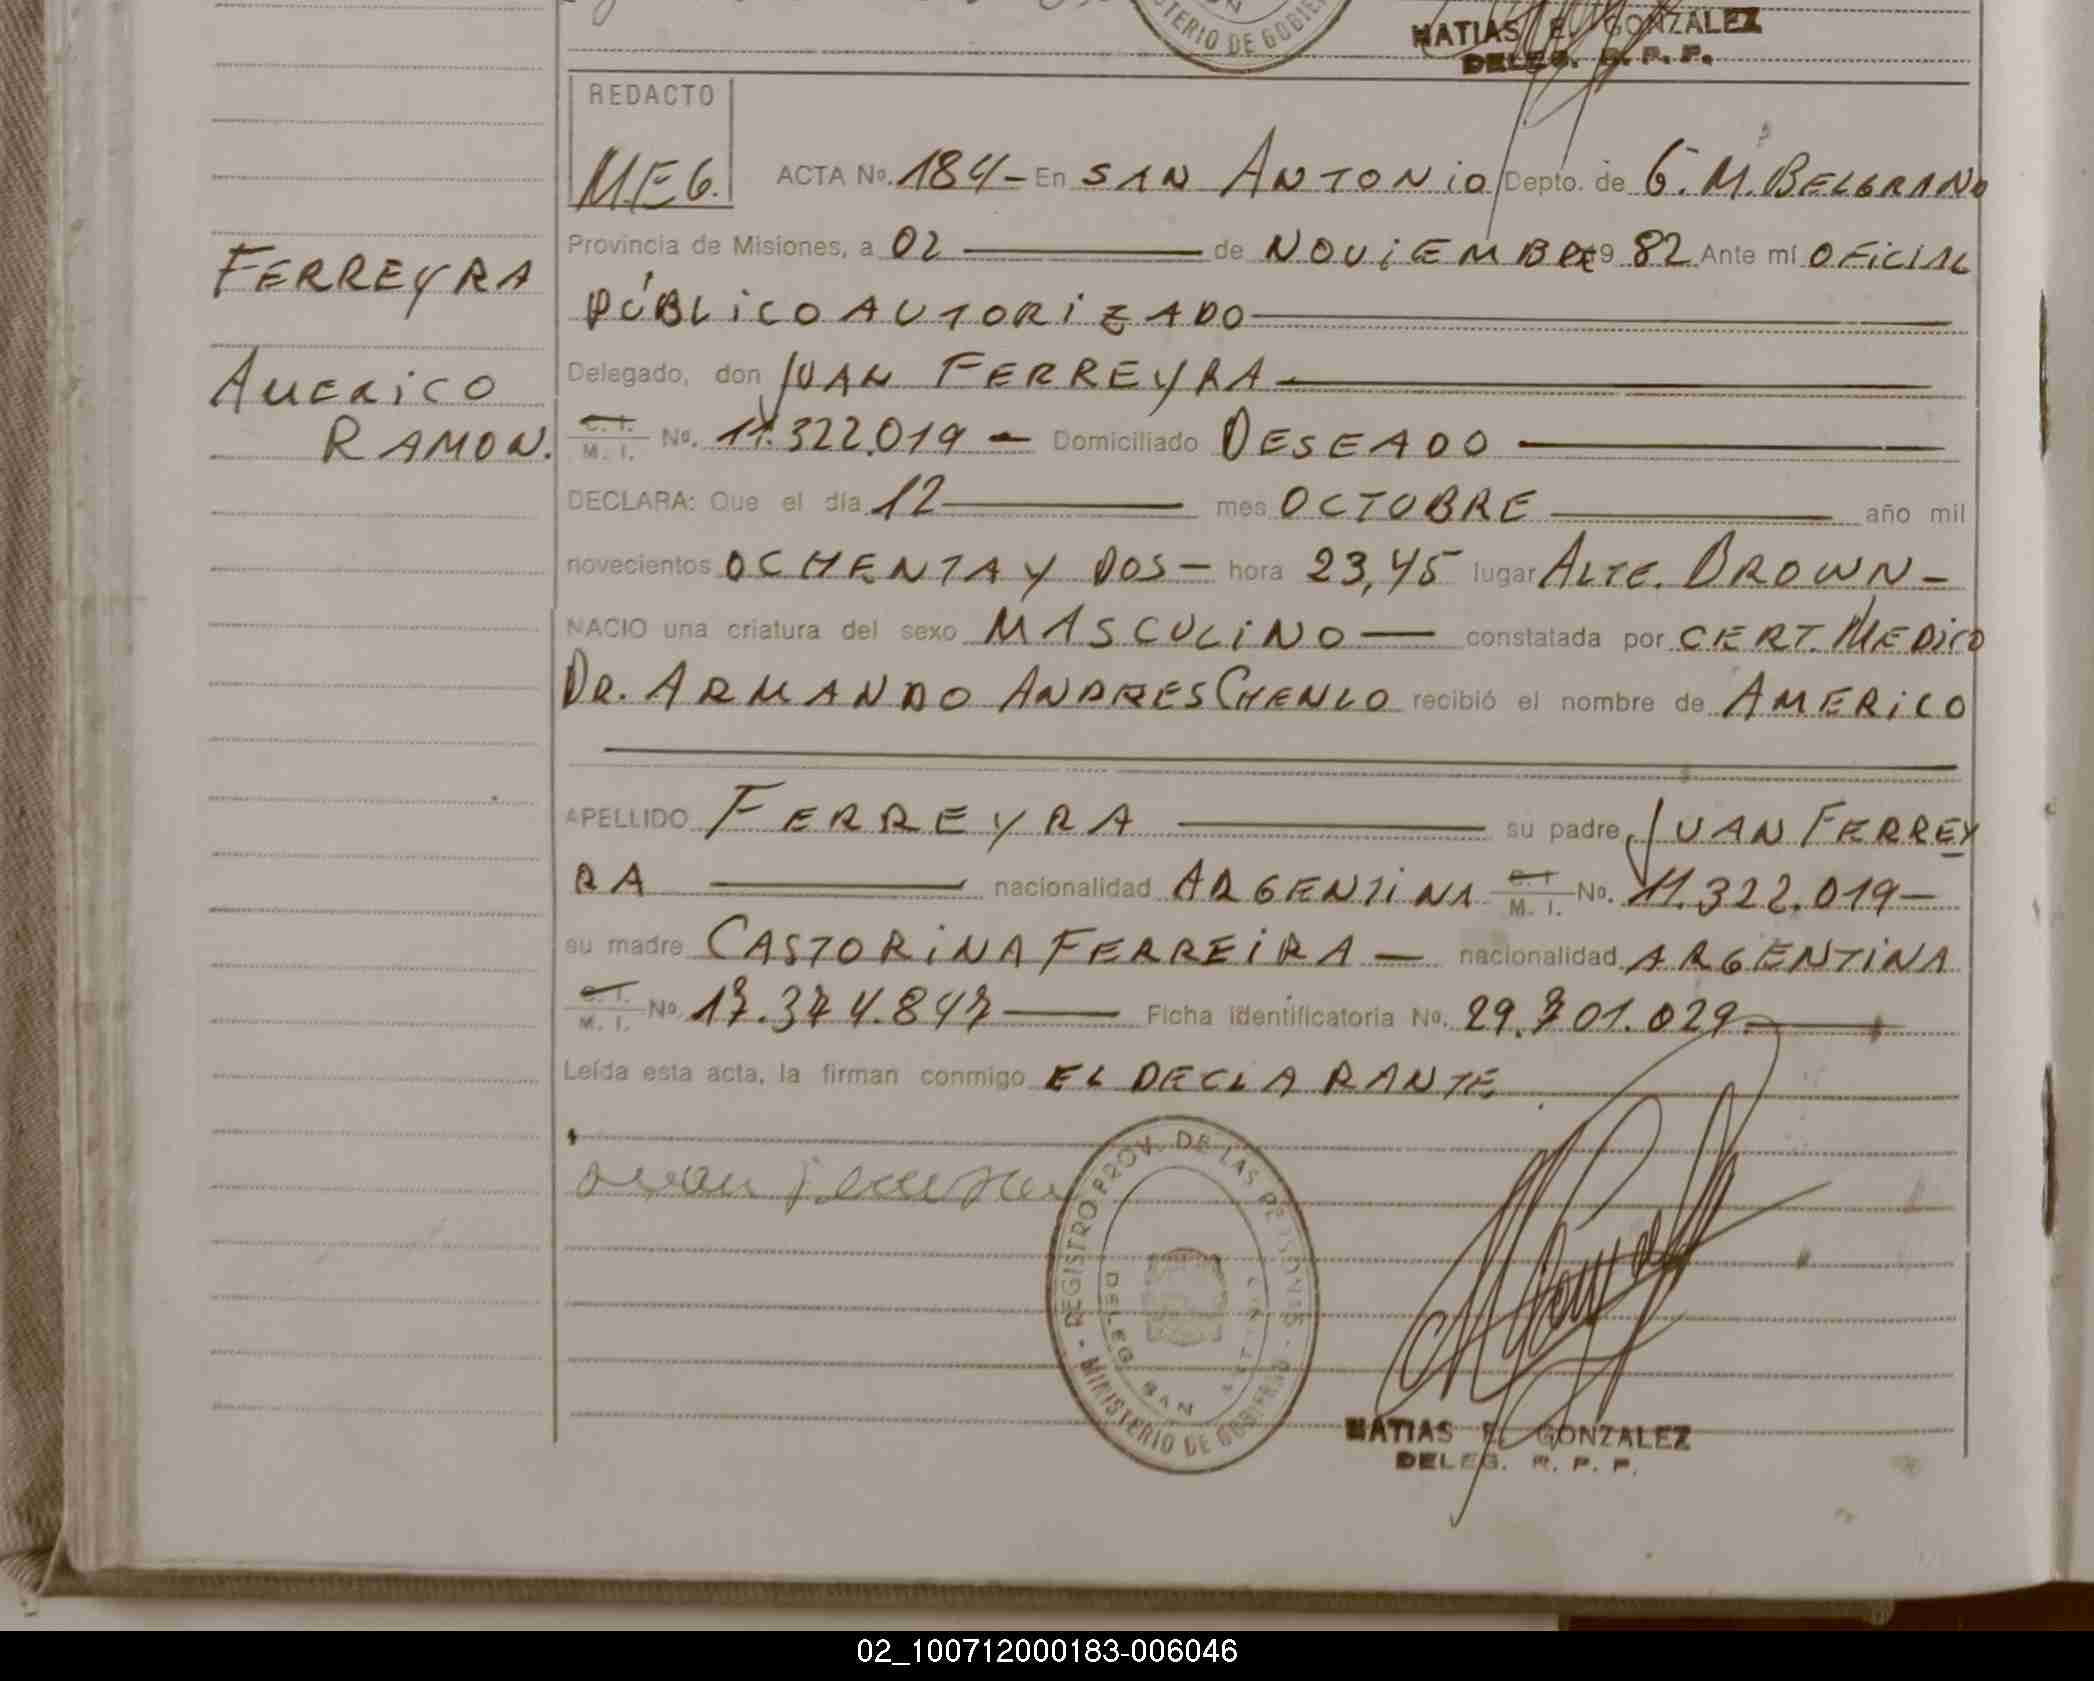 MINISTERIO DE GOBIERNO
MATIAS E. GONZALEZ
DELEG. R. P. P.
REDACTO
MEG.
ACTA No. 184- En SAN ANTONIO Depto. de G. M. BELGRANO
Provincia de Misiones, a 02 de NOVIEMBRE 19 82 Ante mí OFICIAL
PÚBLICO AUTORIZADO
Delegado, don JUAN FERREYRA
C. I.
M. I. No. 11.322.019 - Domiciliado DESEADO
DECLARA: Que el día 12 mes OCTUBRE año mil
novecientos OCHENTA Y DOS- hora 23,45 lugar ALTE. BROWN-
NACIO una criatura del sexo MASCULINO constatada por CERT. MEDICO
DR. ARMANDO ANDRES CHENLO recibió el nombre de AMERICO
APELLIDO FERREYRA su padre JUAN FERREY
RA nacionalidad ARGENTINA C. I.
M. I. No. 11.322.019-
su madre CASTORINA FERREIRA - nacionalidad ARGENTINA
C. I.
M. I. No. 17.374.847 Ficha identificatoria No. 29.701.029.
Leída esta acta, la firman conmigo EL DECLARANTE
REGISTRO PROV. DE LAS PERSONAS - MINISTERIO DE GOBIERNO -
DELEG. SAN ANTONIO
MATIAS E. GONZALEZ
DELEG. R. P. P.
FERREYRA
AMERICO
RAMON.
02_100712000183-006046